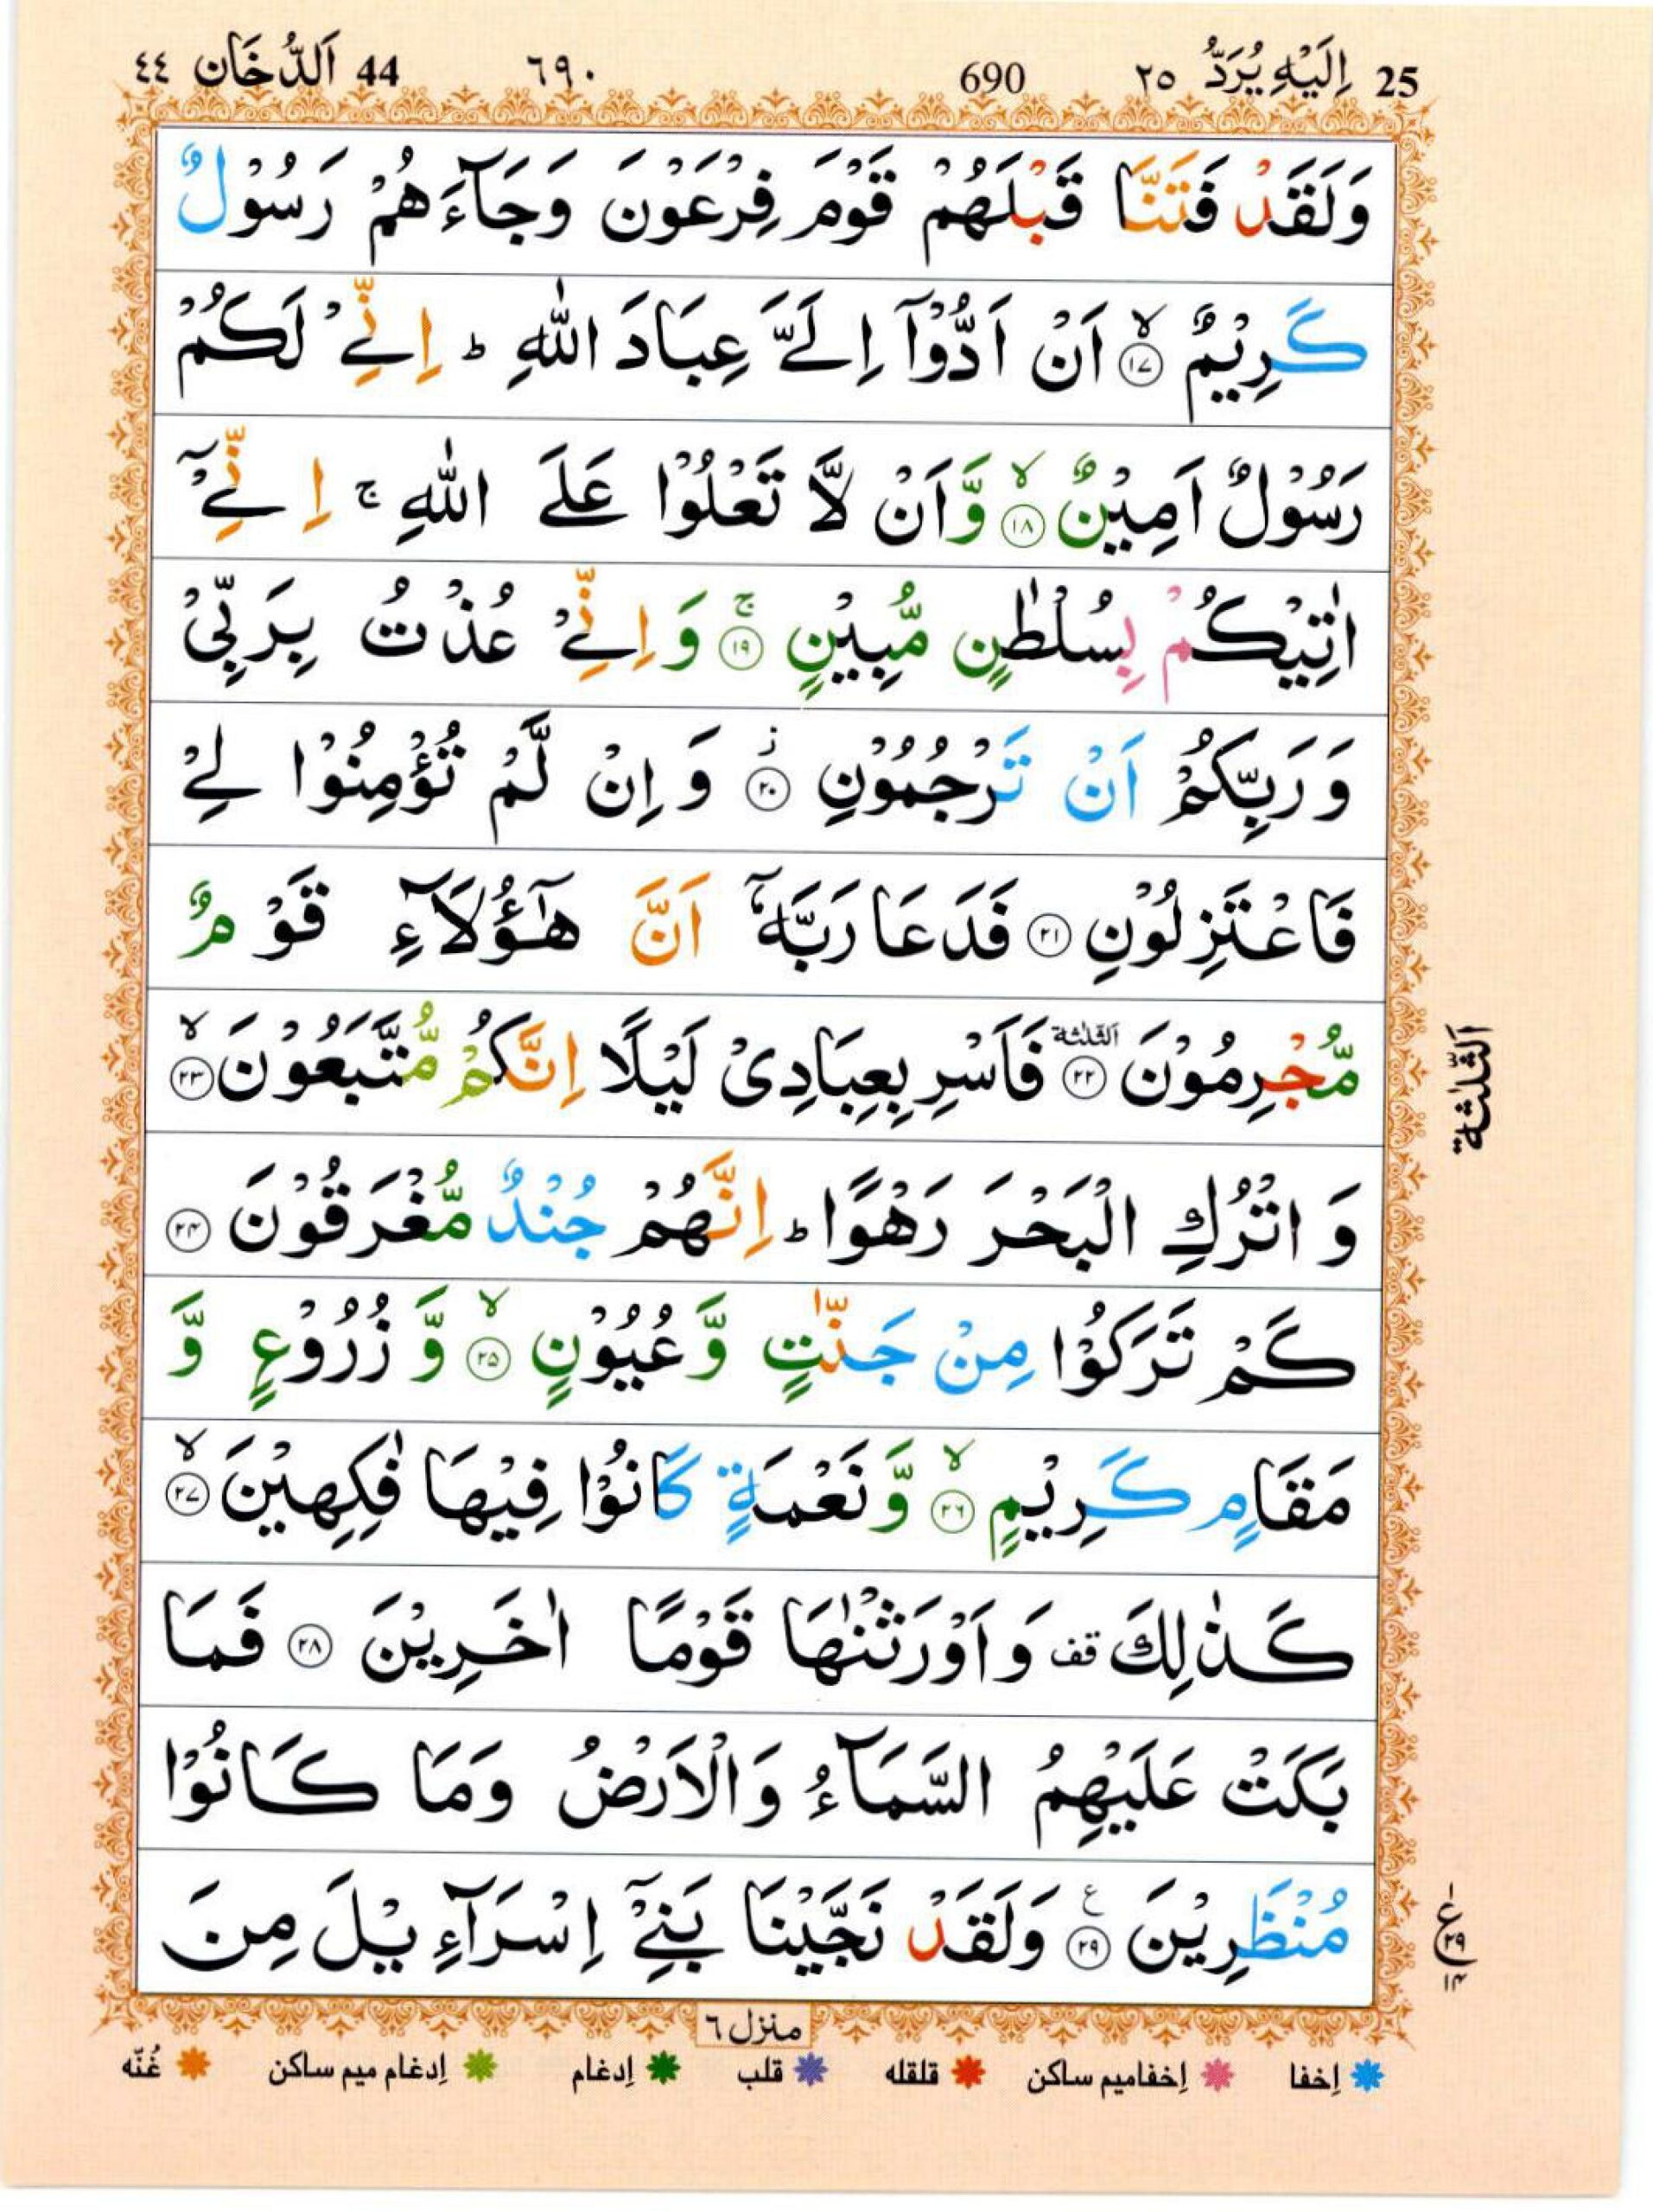 25 اِلَيْهِ يُرَدُّ ٢٥ 690 ٦٩٠ 44 اَلدُّخَان ٤٤
وَلَقَدْ فَتَنَّا قَبْلَهُمْ قَوْمَ فِرْعَوْنَ وَجَآءَهُمْ رَسُوْلٌ
كَرِيْمٌ ۙ‏﴿۱۷﴾ اَنْ اَدُّوْۤا اِلَىَّ عِبَادَ اللّٰهِ ؕ اِنِّىْ لَكُمْ
رَسُوْلٌ اَمِيْنٌ ۙ‏﴿۱۸﴾ وَّاَنْ لَّا تَعْلُوْا عَلَى اللّٰهِ ۚ اِنِّىْۤ
اٰتِيْكُمْ بِسُلْطٰنٍ مُّبِيْنٍ ۚ‏﴿۱۹﴾ وَاِنِّىْ عُذْتُ بِرَبِّىْ
وَرَبِّكُمْ اَنْ تَرْجُمُوْنِ ؗ‏﴿۲۰﴾ وَاِنْ لَّمْ تُؤْمِنُوْا لِىْ
فَاعْتَزِلُوْنِ ‏﴿۲۱﴾ فَدَعَا رَبَّهٗۤ اَنَّ هٰٓؤُلَآءِ قَوْمٌ
مُّجْرِمُوْنَ ‏﴿۲۲﴾ الثلثة فَاَسْرِ بِعِبَادِىْ لَيْلًا اِنَّكُمْ مُّتَّبَعُوْنَ ۙ‏﴿۲۳﴾
اَلثّلٰثة
وَاتْرُكِ الْبَحْرَ رَهْوًا ؕ اِنَّهُمْ جُنْدٌ مُّغْرَقُوْنَ ‏﴿۲۴﴾
كَمْ تَرَكُوْا مِنْ جَنّٰتٍ وَّعُيُوْنٍ ۙ‏﴿۲۵﴾ وَّزُرُوْعٍ وَّ
مَقَامٍ كَرِيْمٍ ۙ‏﴿۲۶﴾ وَّنَعْمَةٍ كَانُوْا فِيْهَا فٰكِهِيْنَ ۙ‏﴿۲۷﴾
كَذٰلِكَ قف وَاَوْرَثْنٰهَا قَوْمًا اٰخَرِيْنَ ‏﴿۲۸﴾ فَمَا
بَكَتْ عَلَيْهِمُ السَّمَآءُ وَالْاَرْضُ وَمَا كَانُوْا
مُنْظَرِيْنَ ‏﴿۲۹﴾ ع وَلَقَدْ نَجَّيْنَا بَنِىْۤ اِسْرَآءِيْلَ مِنَ
ع ۲۹ ۱۴
منزل ٦
اِخفا اِخفامیم ساکن قلقله قلب اِدغام اِدغام میم ساکن غُنّه